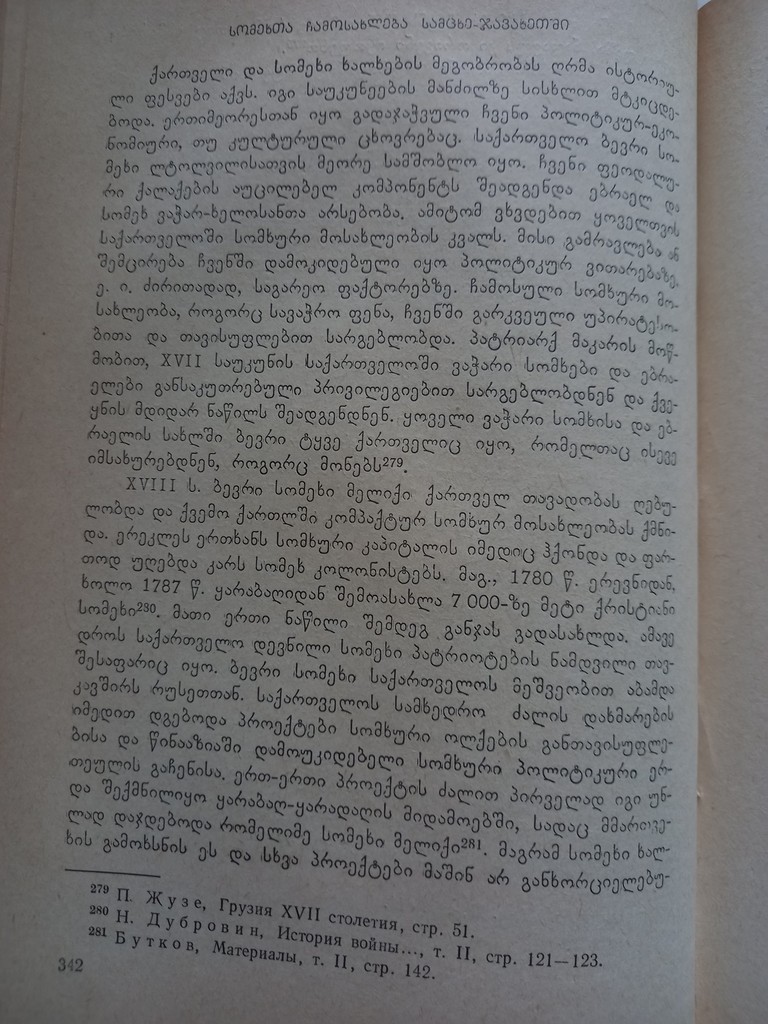 სომეხთა ჩამოსახლება სამცხე-ჯავახეთში
ქართველი და სომეხი ხალხების მეგობრობას ღრმა ისტორიუ-
ლი ფესვები აქვს. იგი საუკუნეების მანძილზე სისხლით მტკიცდე-
ბოდა. ერთიმეორესთან იყო გადაჯაჭვული ჩვენი პოლიტიკურ-ეკო-
ნომიური, თუ კულტურული ცხოვრებაც. საქართველო ბევრი სო-
მეხი ლტოლვილისათვის მეორე სამშობლო იყო. ჩვენი ფეოდალუ-
რი ქალაქების აუცილებელ კომპონენტს შეადგენდა ებრაელ და
სომეხ ვაჭარ-ხელოსანთა არსებობა. ამიტომ ვხვდებით ყოველთვის
საქართველოში სომხური მოსახლეობის კვალს. მისი გამრავლება ან
შემცირება ჩვენში დამოკიდებული იყო პოლიტიკურ ვითარებაზე,
ე. ი. ძირითადად, საგარეო ფაქტორებზე. ჩამოსული სომხური მო-
სახლეობა, როგორც სავაჭრო ფენა, ჩვენში გარკვეული უპირატესო-
ბითა და თავისუფლებით სარგებლობდა. პატრიარქ მაკარის მოწ-
მობით, XVII საუკუნის საქართველოში ვაჭარი სომხები და ებრა-
ელები განსაკუთრებული პრივილეგიებით სარგებლობდნენ და ქვე-
ყნის მდიდარ ნაწილს შეადგენდნენ. ყოველი ვაჭარი სომხისა და ებ-
რაელის სახლში ბევრი ტყვე ქართველიც იყო, რომელთაც ისევე
იმსახურებდნენ, როგორც მონებს²⁷⁹.
XVIII ს. ბევრი სომეხი მელიქი ქართველ თავადობას ღებუ-
ლობდა და ქვემო ქართლში კომპაქტურ სომხურ მოსახლეობას ქმნი-
და. ერეკლეს ერთხანს სომხური კაპიტალის იმედიც ჰქონდა და ფარ-
თოდ უღებდა კარს სომეხ კოლონისტებს. მაგ., 1780 წ. ერევნიდან,
ხოლო 1787 წ. ყარაბაღიდან შემოასახლა 7 000-ზე მეტი ქრისტიანი
სომეხი²⁸⁰. მათი ერთი ნაწილი შემდეგ განჯას გადასახლდა. ამავე
დროს საქართველო დევნილი სომეხი პატრიოტების ნამდვილი თავ-
შესაფარიც იყო. ბევრი სომეხი საქართველოს მეშვეობით აბამდა
კავშირს რუსეთთან. საქართველოს სამხედრო ძალის დახმარების
იმედით დგებოდა პროექტები სომხური ოლქების განთავისუფლე-
ბისა და წინააზიაში დამოუკიდებელი სომხური პოლიტიკური ერ-
თეულის გაჩენისა. ერთ-ერთი პროექტის ძალით პირველად იგი უნ-
და შექმნილიყო ყარაბაღ-ყარადაღის მიდამოებში, სადაც მმართვე-
ლად დაჯდებოდა რომელიმე სომეხი მელიქი²⁸¹. მაგრამ სომეხი ხალ-
ხის გამოხსნის ეს და სხვა პროექტები მაშინ არ განხორციელებუ-
²⁷⁹ П. Жузе, Грузия XVII столетия, стр. 51.
²⁸⁰ Н. Дубровин, История войны..., т. II, стр. 121—123.
²⁸¹ Бутков, Материалы, т. II, стр. 142.
342